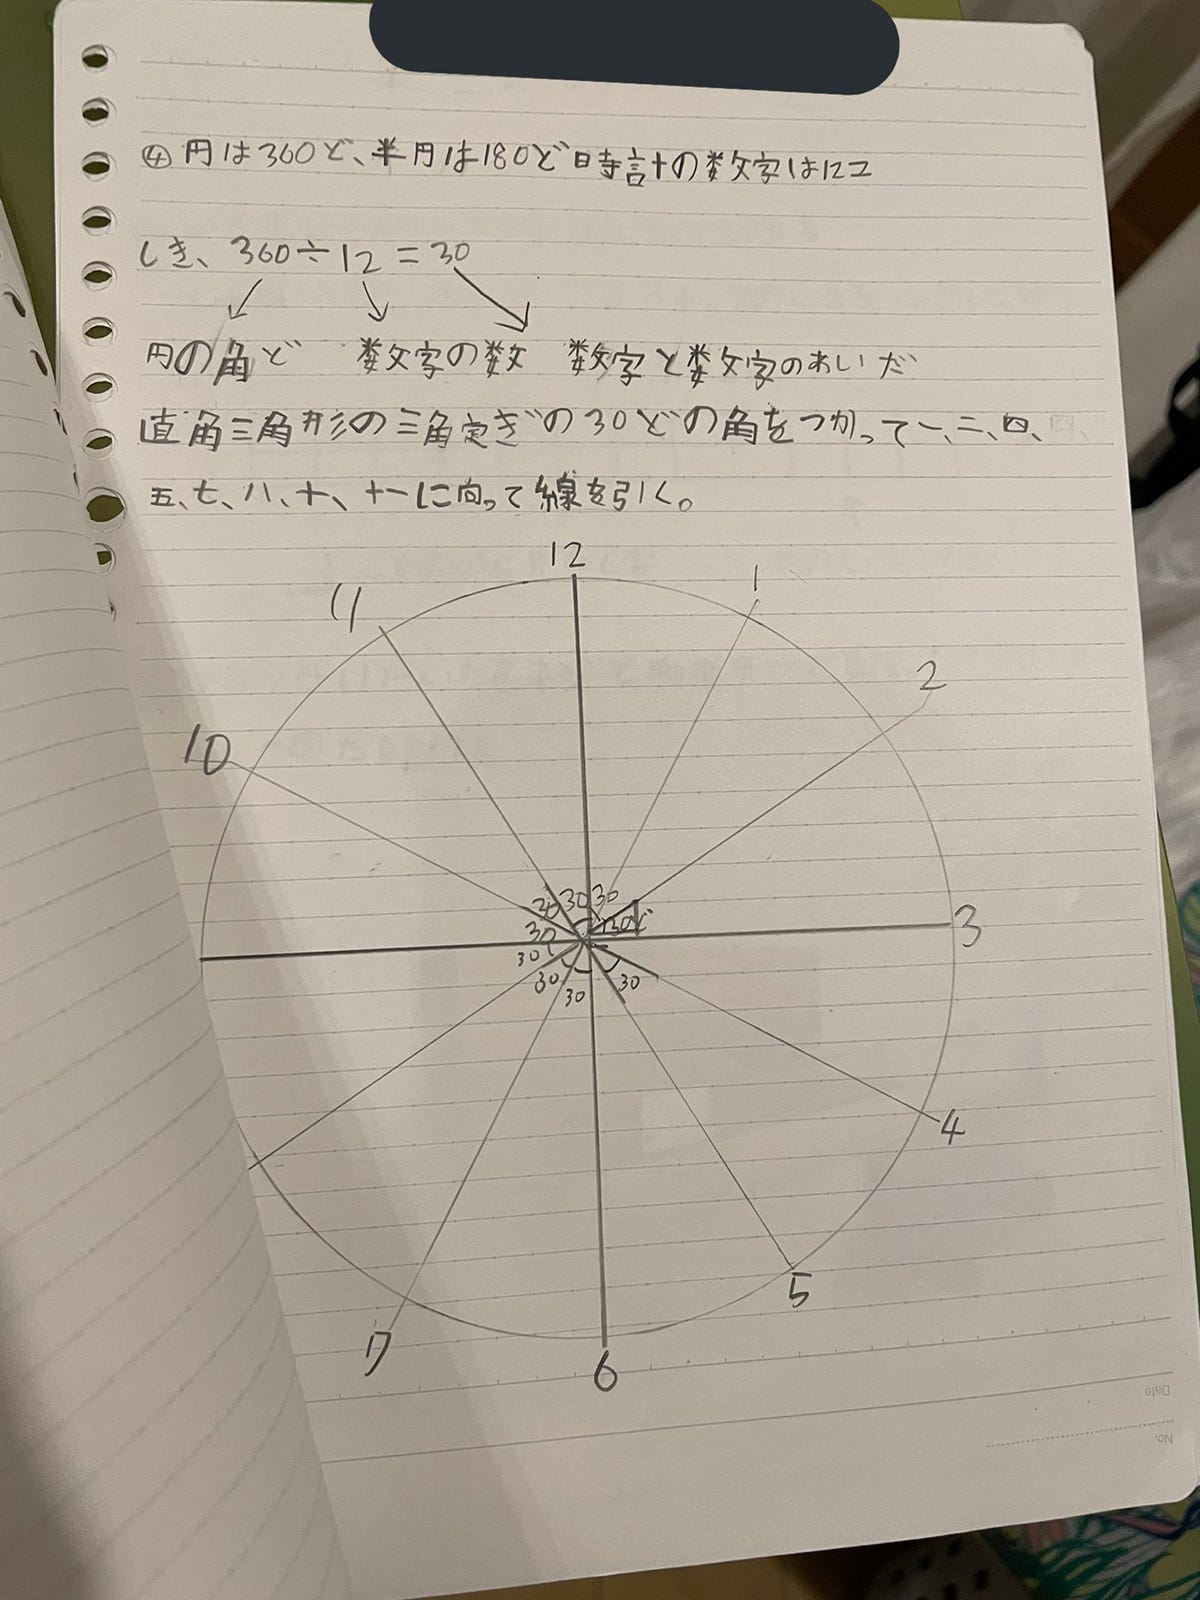 ④円は360ど、半円は180ど時計の数字は12コ
しき、360÷12=30
円の角ど 数字の数 数字と数字のあいだ
直角三角形の三角定ぎの30どの角をつかって一、二、四、
五、七、八、十、十一に向って線を引く。
12
11
1
2
10
30 30 30
30 30ど
30
30
30
30
3
4
5
7
6
Date
No.